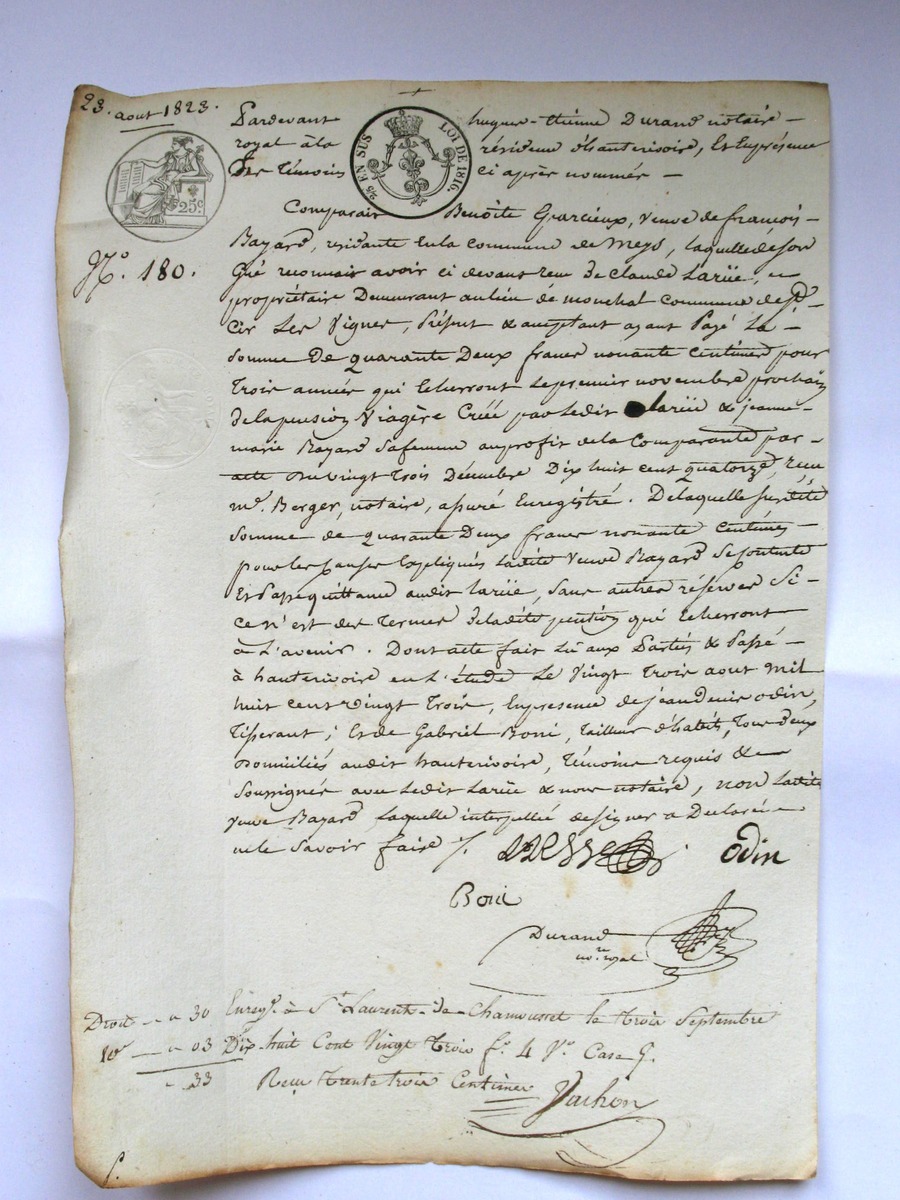 23. aout 1823.
Pardevant hugues-étienne Durand notaire
royal à la résidence d'hauterivoire, et En présence
Des Témoins ci après nommés
EN SUS
LOI DE 1816.
25 c
Comparait Benoîte Garcieux, Veuve de françois
Bayard, résidante En la commune de Meys, laquelle de son
Gré reconnait avoir ci devant reçu de Claude Larüe,
propriétaire Demeurant au lieu de mouchal commune de st
cir Les Vignes, Présent & acceptant ayant Payé La
Somme De quarante Deux francs nonante centimes pour
Trois années qui Echerront le premier novembre prochain
N.º 180.
de la pension Viagère Créé par Ledit Larüe & jeanne
marie Bayard sa femme au profit de la Comparante par
acte Du vingt Trois Décembre Dix huit cent quatorze, reçu
me. Berger, notaire, assuré Enregistré. De laquelle susdite
Somme de quarante Deux francs nonante centimes
pour les causes Expliqués Ladite Veuve Bayard se contente
Et Passe quittance audit Larüe, Sans autres réserves Si
ce n'est des Termes de ladite pention qui Echerront
à L'avenir. Dont acte fait Lu aux Parties & Passé
à hauterivoire en L'étude Le Vingt Trois aout Mil
huit cent vingt Trois, En présence de jean denis odin,
Tisserant; Et de Gabriel Boni, Tailleur d'habits, Tous deux
Domiciliés audit hauterivoire, Témoins requis &
Soussignés avec Ledit Larüe & nous notaire, non Ladite
Veuve Bayard Laquelle interpellée de signer a Déclaré
ne le Savoir faire /.
Odin
Boni
Durand
no.re royal
Droit 30 Enreg.é à St. Laurent-de-Chamousset le trois Septembre
10e 03 Dix-huit Cent Vingt Trois f.º 4 V.º Case 9.
33 Reçu trente trois Centimes
Vachon